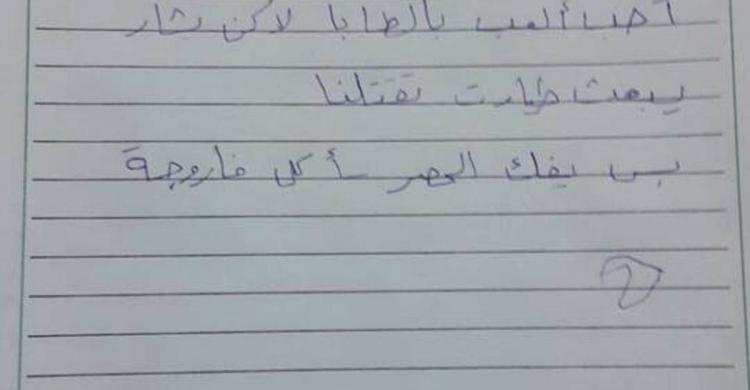 أحب ألعب بالطابا لاكن بشار
يبعث طيارت تقتلنا
بس يفك الحصر سأكل فاروجة